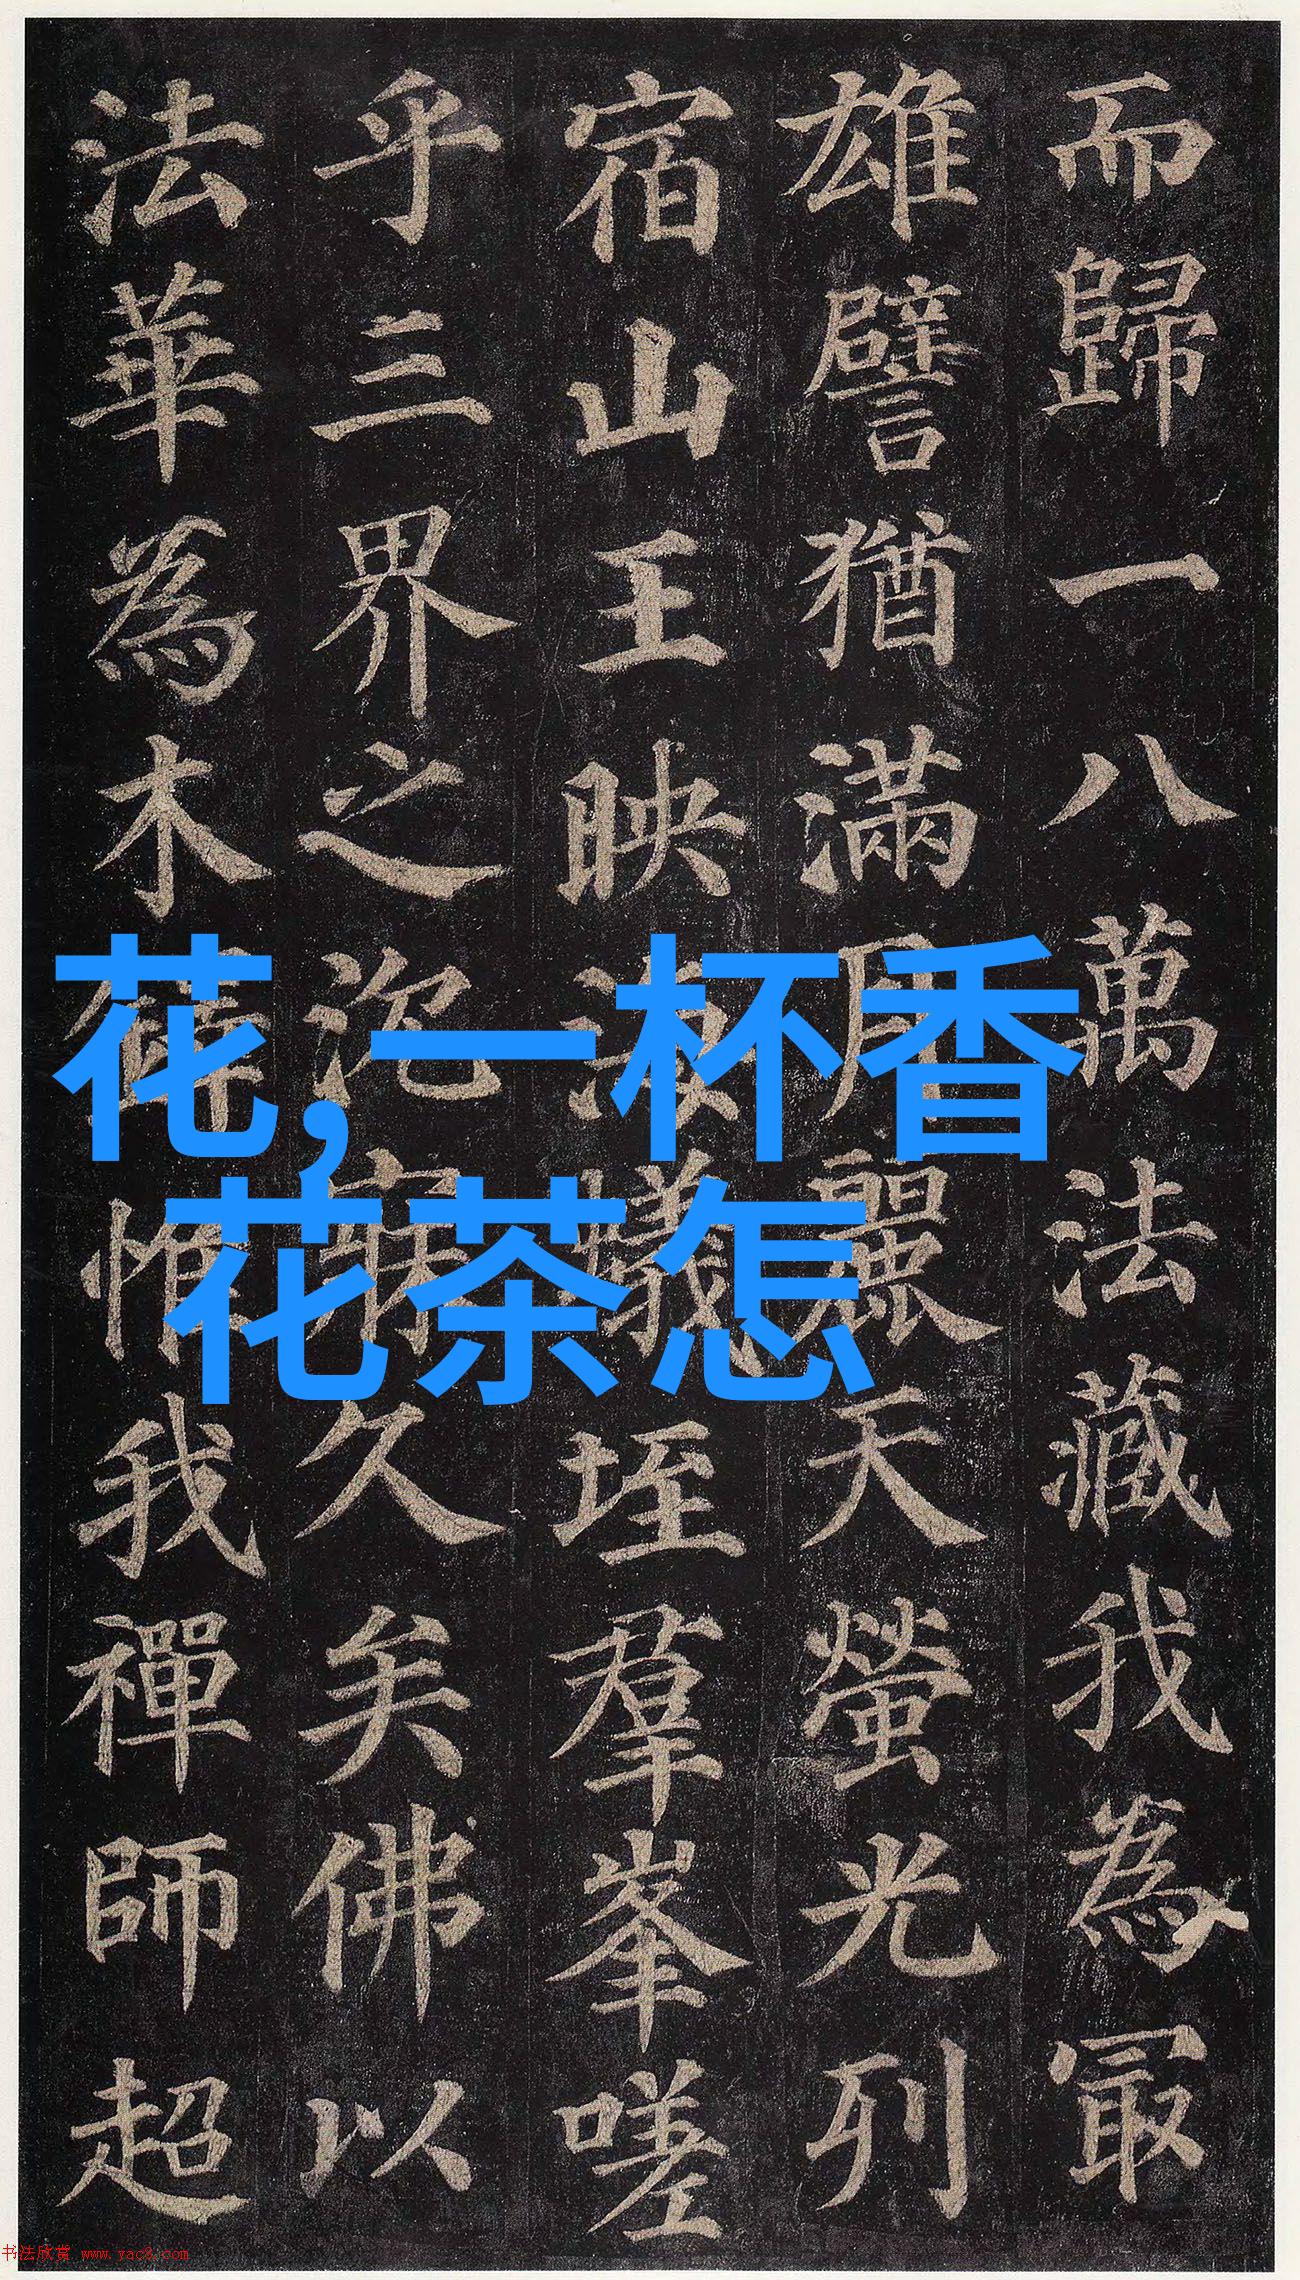 而歸一八萬法藏我為冣
雄譬猶滿月麗天螢光列
宿山王映海蟻垤群峯嗟
乎三界之沉寐久矣佛以
法華為木鐸惟我禪師超
花,一杯香
花茶怎
书法欣赏 www.yac8.com